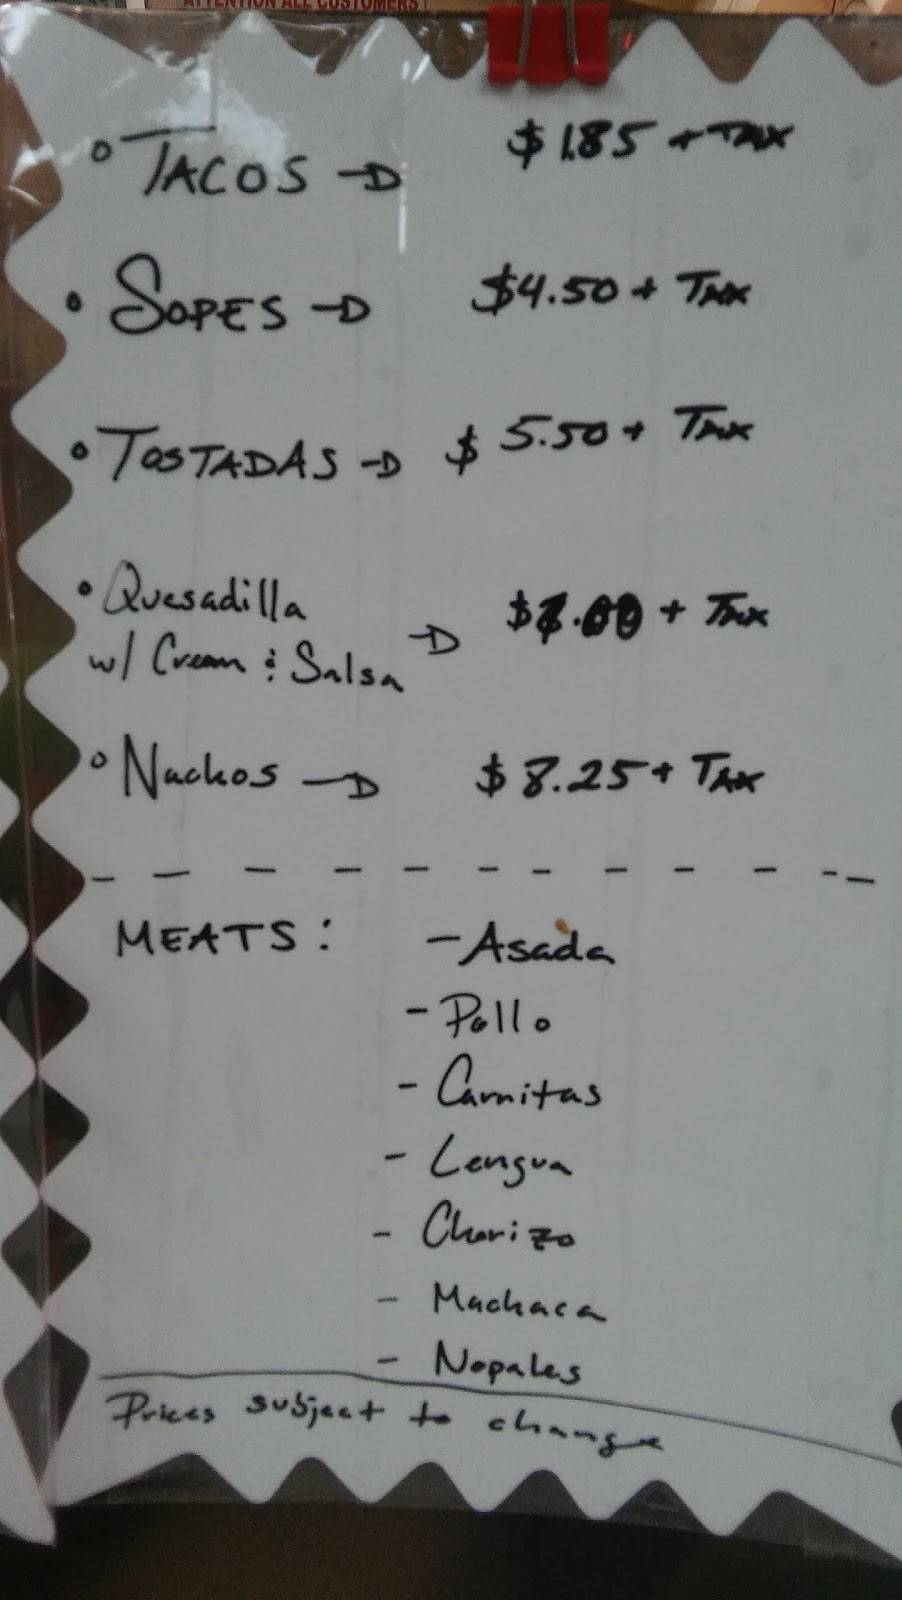 ATTENTION ALL CUSTOMERS
TACOS → $1.85 + TAX
SOPES → $4.50 + TAX
TOSTADAS → $ 5.50 + TAX
Quesadilla
w/ Cream & Salsa → + TAX
Nachos → $ 8.25 + TAX
MEATS: - Asada
- Pollo
- Carnitas
- Lengua
- Chorizo
- Machaca
- Nopales
Prices subject to change